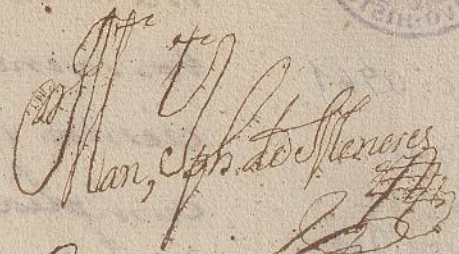 Man, Jph. de Meneses